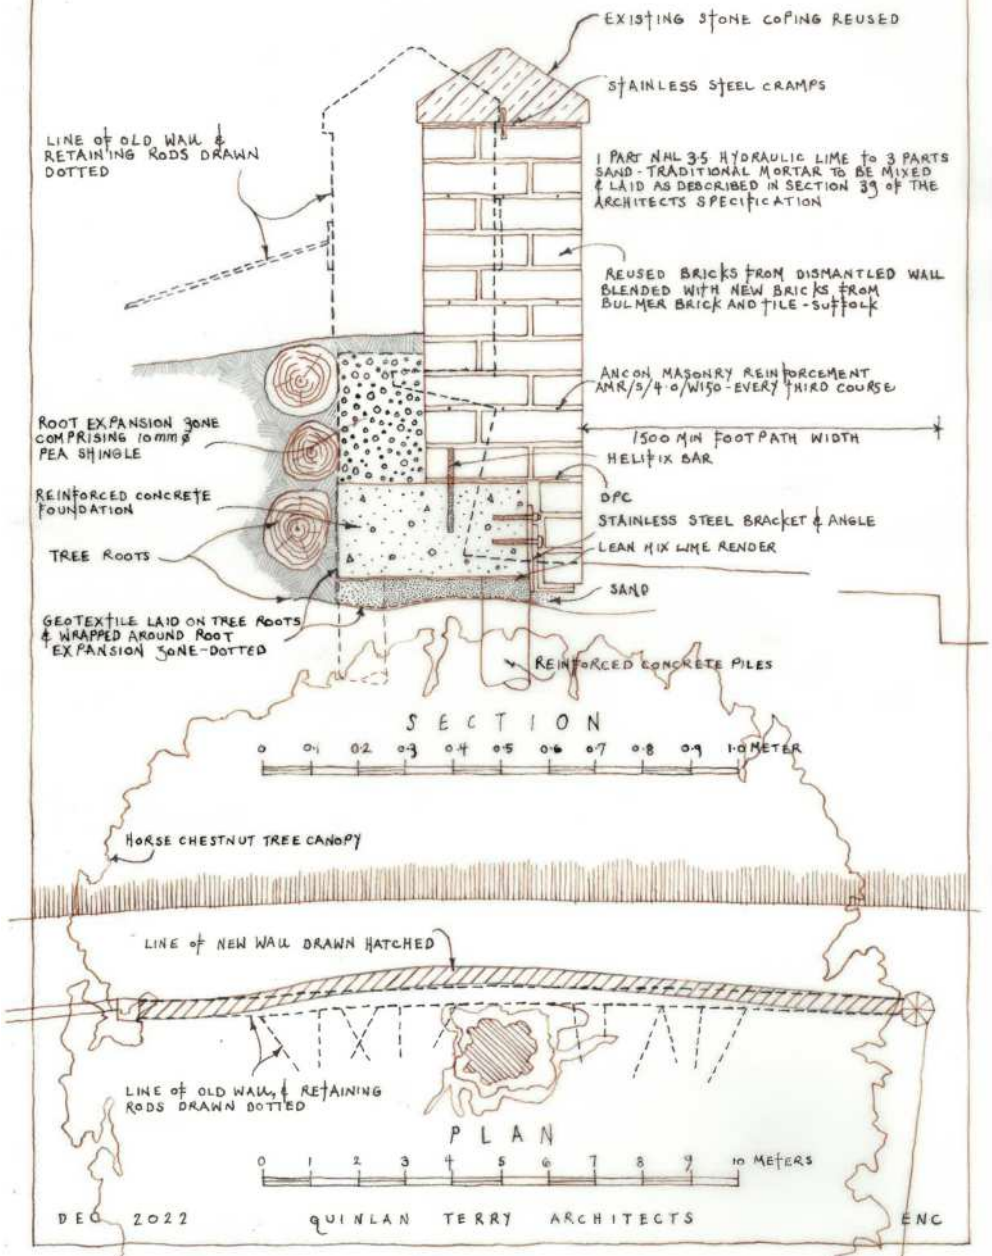 EXISTING STONE COPING REUSED
STAINLESS STEEL CRAMPS
LINE OF OLD WALL &
RETAINING RODS DRAWN
DOTTED
1 PART NHL 3.5 HYDRAULIC LIME TO 3 PARTS
SAND - TRADITIONAL MORTAR TO BE MIXED
& LAID AS DESCRIBED IN SECTION 39 OF THE
ARCHITECTS SPECIFICATION
REUSED BRICKS FROM DISMANTLED WALL
BLENDED WITH NEW BRICKS FROM
BULMER BRICK AND TILE - SUFFOLK
ANCON MASONRY REINFORCEMENT
AMR/S/4.0/W150 - EVERY THIRD COURSE
1500 MIN FOOTPATH WIDTH
HELIFIX BAR
ROOT EXPANSION ZONE
COMPRISING 10mm Ø
PEA SHINGLE
REINFORCED CONCRETE
FOUNDATION
TREE ROOTS
DPC
STAINLESS STEEL BRACKET & ANGLE
LEAN MIX LIME RENDER
SAND
GEOTEXTILE LAID ON TREE ROOTS
& WRAPPED AROUND ROOT
EXPANSION ZONE-DOTTED
REINFORCED CONCRETE PILES
SECTION
0 0.1 0.2 0.3 0.4 0.5 0.6 0.7 0.8 0.9 1.0 METER
HORSE CHESTNUT TREE CANOPY
LINE OF NEW WALL DRAWN HATCHED
LINE OF OLD WALL, & RETAINING
RODS DRAWN DOTTED
PLAN
0 1 2 3 4 5 6 7 8 9 10 METERS
DEC 2022 QUINLAN TERRY ARCHITECTS ENC